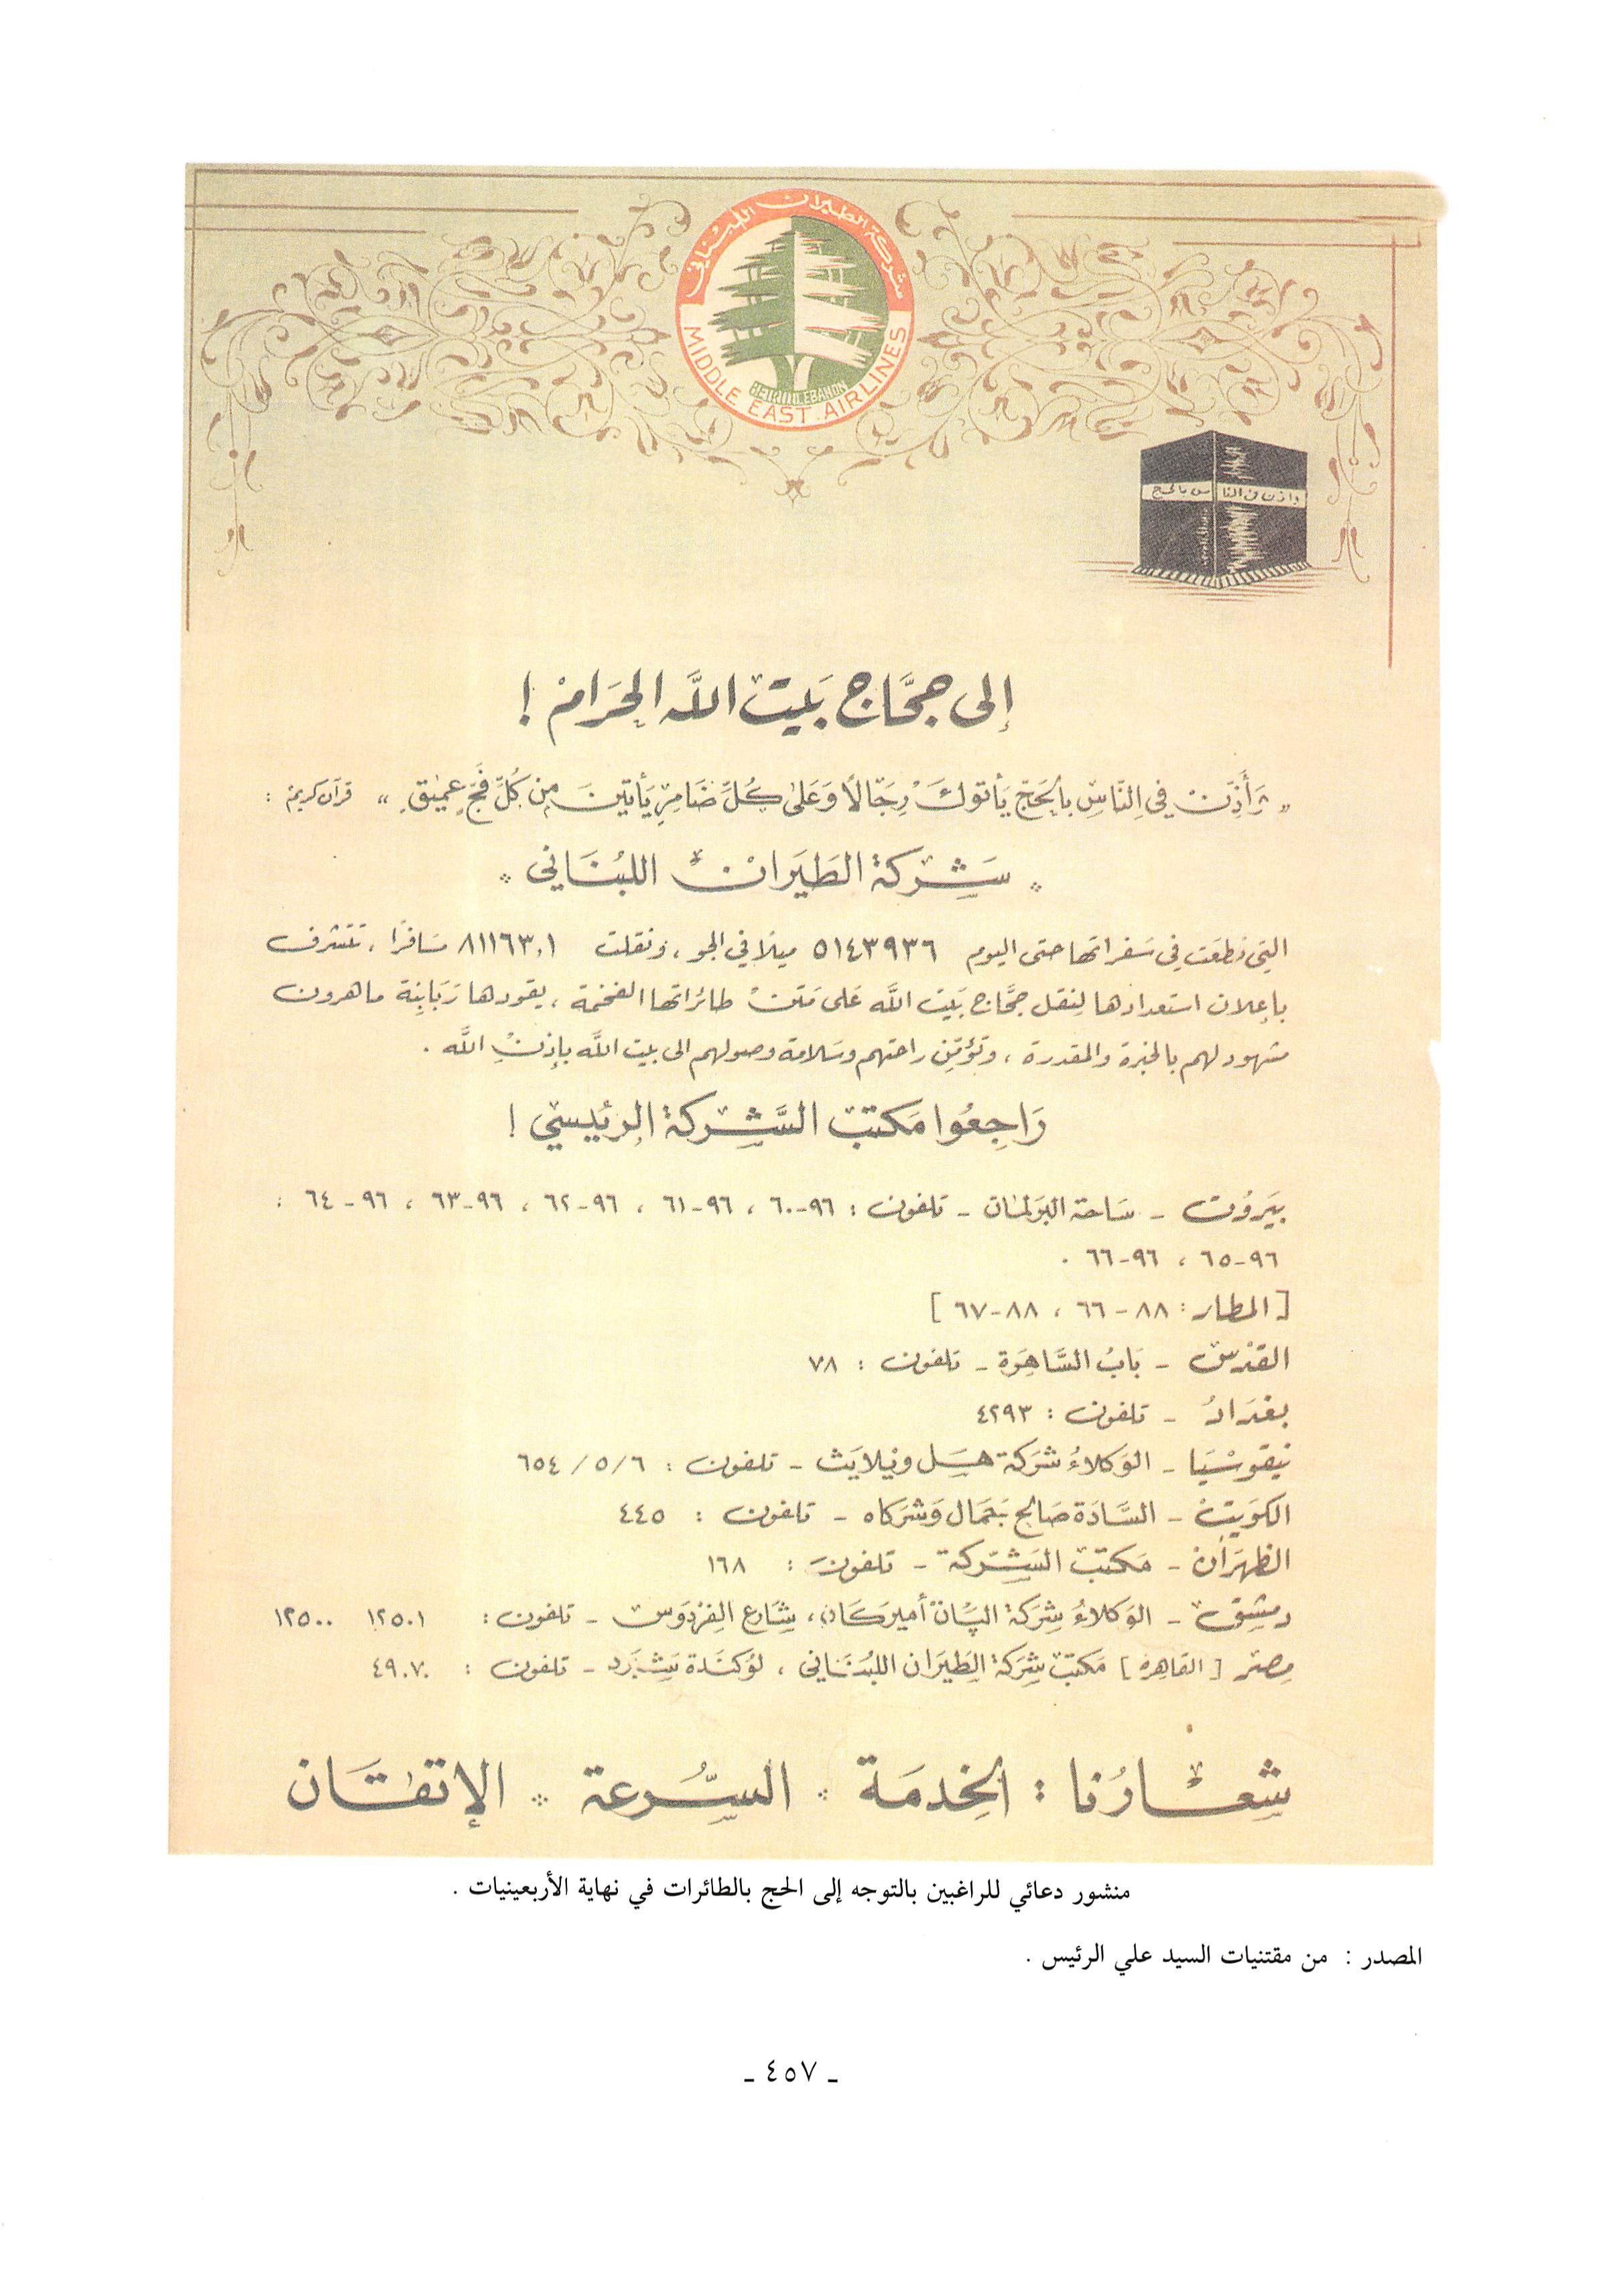 شركة الطيران اللبناني
BEIRUT LEBANON
MIDDLE EAST AIRLINES
واذن في الناس بالحج
إلى حجَّاج بَيت اللَّه الحَرَام !
« وَأَذِّنْ في النَّاسِ بالحَجّ يَأتوكَ رِجَالًا وَعَلى كُلِّ ضَامِرٍ يَأتينَ مِن كُلِّ فَجٍّ عَميقٍ » قرآن كريم :
شَركة الطَيَران اللبُنَاني
التي قطعَت في سَفراتها حتى اليوم ٥١٤٣٩٣٦ ميلًا في الجو ، ونقلت ٨١١٦٣٠١ مسَافرًا ، تتشرف
بإعلان استعدادها لِنقل حجَّاج بَيت اللَّه عَلى مَتن طائراتها الفخمة ، يقودها رَبَابِنة ماهرون
مشهود لهم بالخبرة والمقدرة ، وتؤمّن راحتهم وسَلامة وصولهم الى بيت اللَّه بإذنِ اللَّه .
رَاجِعُوا مَكتبَ الشَّركة الرئيسي !
بَيروُت - سَاحة البرلمان - تلفون : ٩٦-٦٠ ، ٩٦-٦١ ، ٩٦-٦٢ ، ٩٦-٦٣ ، ٩٦-٦٤ :
٩٦-٦٥ ، ٩٦-٦٦ .
[ المطار : ٨٨-٦٦ ، ٨٨-٦٧ ]
القدْس - بَابُ السَّاهِرَة - تلفون : ٧٨
بغدَادُ - تلفون : ٤٢٩٣
نيقوسْيَا - الوَكلاءُ شرَكة هسَل وَيلايَث - تلفون : ٦٥٤/٥/٦
الكوَيت - السَّادَة صَالح جَمال وَشرَكاه - تلفون : ٤٤٥
الظهرَان - مَكتبَ الشَّركة - تلفون : ١٦٨
دمشِق - الوَكلاءُ شِرَكة البَّان أميرَكَان ، شَارع الفِرْدَوس - تلفون : ١٢٥٠١ ١٢٥٠٠
مِصْر [ القاهِرة ] مَكتبَ شِرَكة الطيَران اللبُنَاني ، لوُكنَدة شَبَرد - تلفون : ٤٩٠٧٠
شعَارُنا : الخِدمَة السُّرعة الإتقَان
منشور دعائي للراغبين بالتوجه إلى الحج بالطائرات في نهاية الأربعينيات .
المصدر : من مقتنيات السيد علي الرئيس .
- ٤٥٧ -